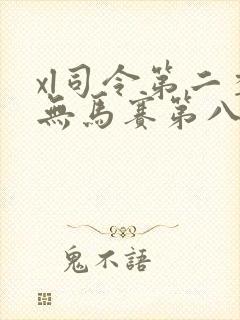 xl司令第二季
無馬賽第八
鬼不語